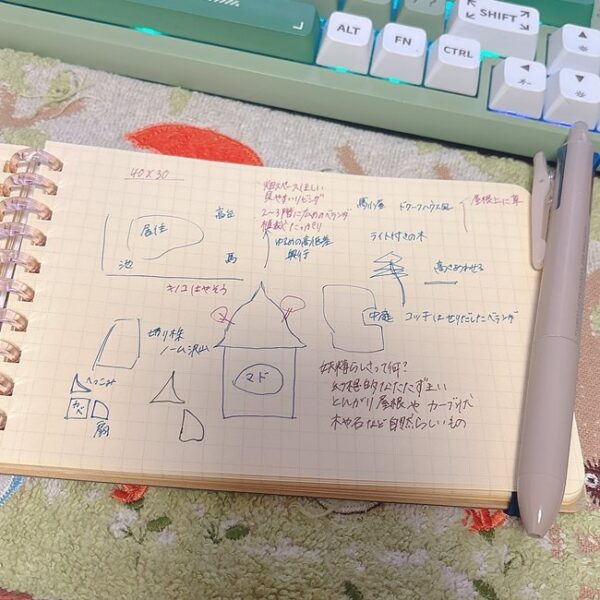 ALT
FN
CTRL
SHIFT
40×30
畑スペースほしい
見やすいリビング
2〜3階にながめのベランダ
植栽でたっぷり
ゆるめの高低差
奥行
居住
池
高台
馬
キノコはやそう
馬小屋
ドワーフハウス風
屋根上に草
ライト付きの木
高さあわせる
中庭
コッチはせりだしたベランダ
切り株
ノーム沢山
へっこみ
カベ
扉
マド
妖精らしさって何?
幻想的なたたずまい
とんがり屋根や カーブ
木や石など自然らしいもの